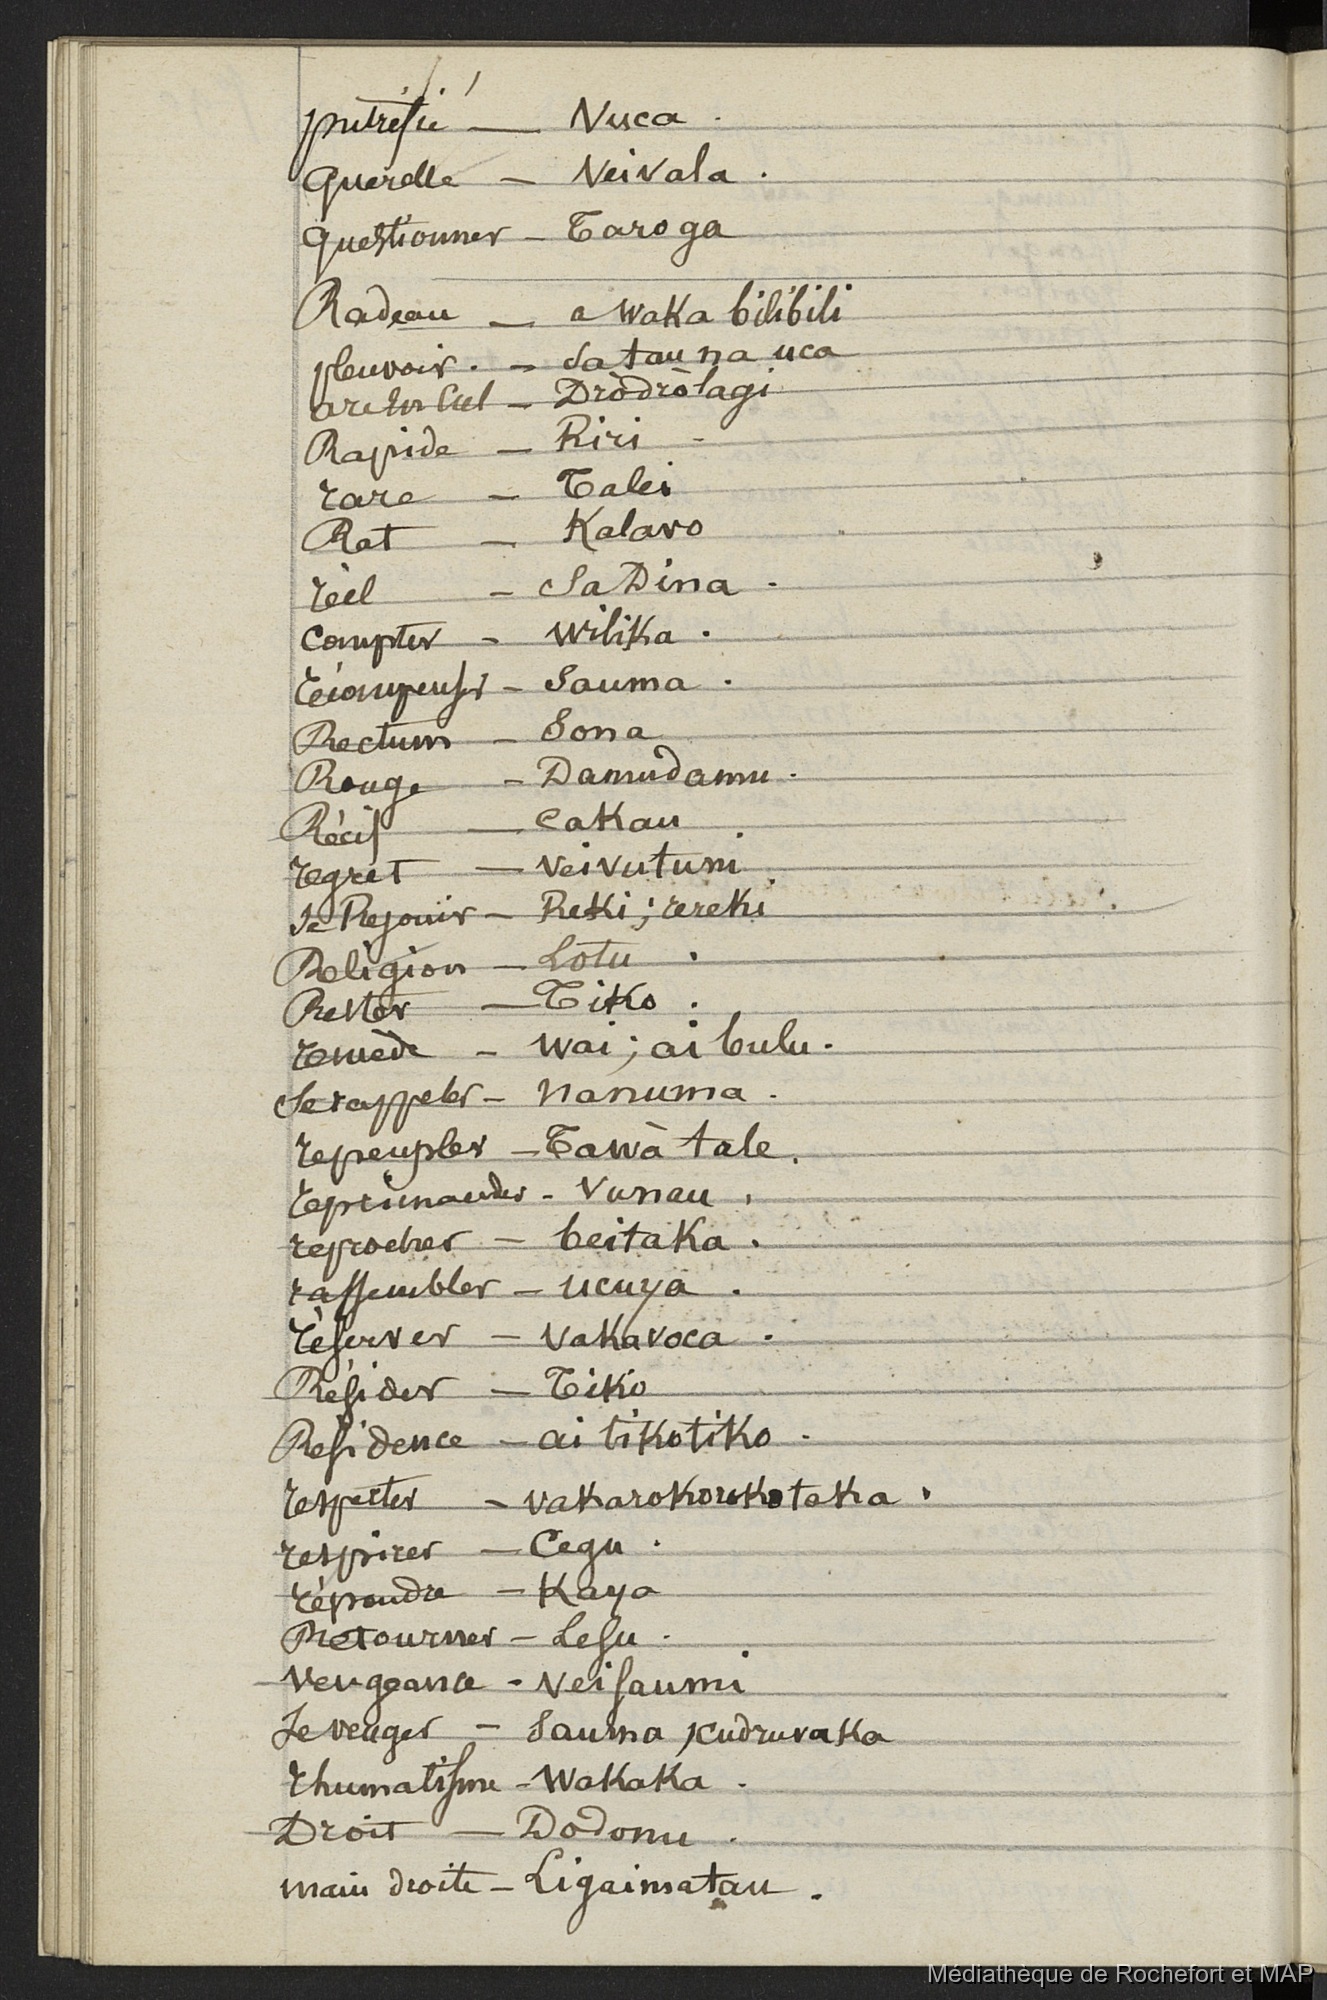 putréfié — Nuca .
Querelle — Veivala .
Questionner — Taroga
Radeau — a waka bilibili
pleuvoir . — Sa tau na uca
arc en Ciel — Dròdròlagi
Rapide — Riri -
rare — Talei
Rat — Kalavo
réel — Sa Dina .
Compter — Wilika .
récompenser — Sauma .
Rectum — Sona
Rouge — Damudamu .
Récif — Cakau
regret — Veivutuni
Se Rejouir — Reki ; rereki
Religion — Lotu .
Rester — Tiko .
remède — Wai ; ai bulu .
Se rappeler — Nanuma .
repeupler — Tawà tale .
reprimander - Vunau .
reprocher — beitaka .
rassembler — ucuya .
réserver — Vakavoca .
Résider — Tiko
Résidence — ai tikotiko .
respecter — vakarokorokotaka .
respirer — Cegu .
répondre — Kaya
Retourner — Lesu .
Vengeance - Veisaumi
Se venger — Sauma , kudruvaka
rhumatisme - Wakaka .
Droit — Dodonu .
main droite — Ligaimatau .
Médiathèque de Rochefort et MAP